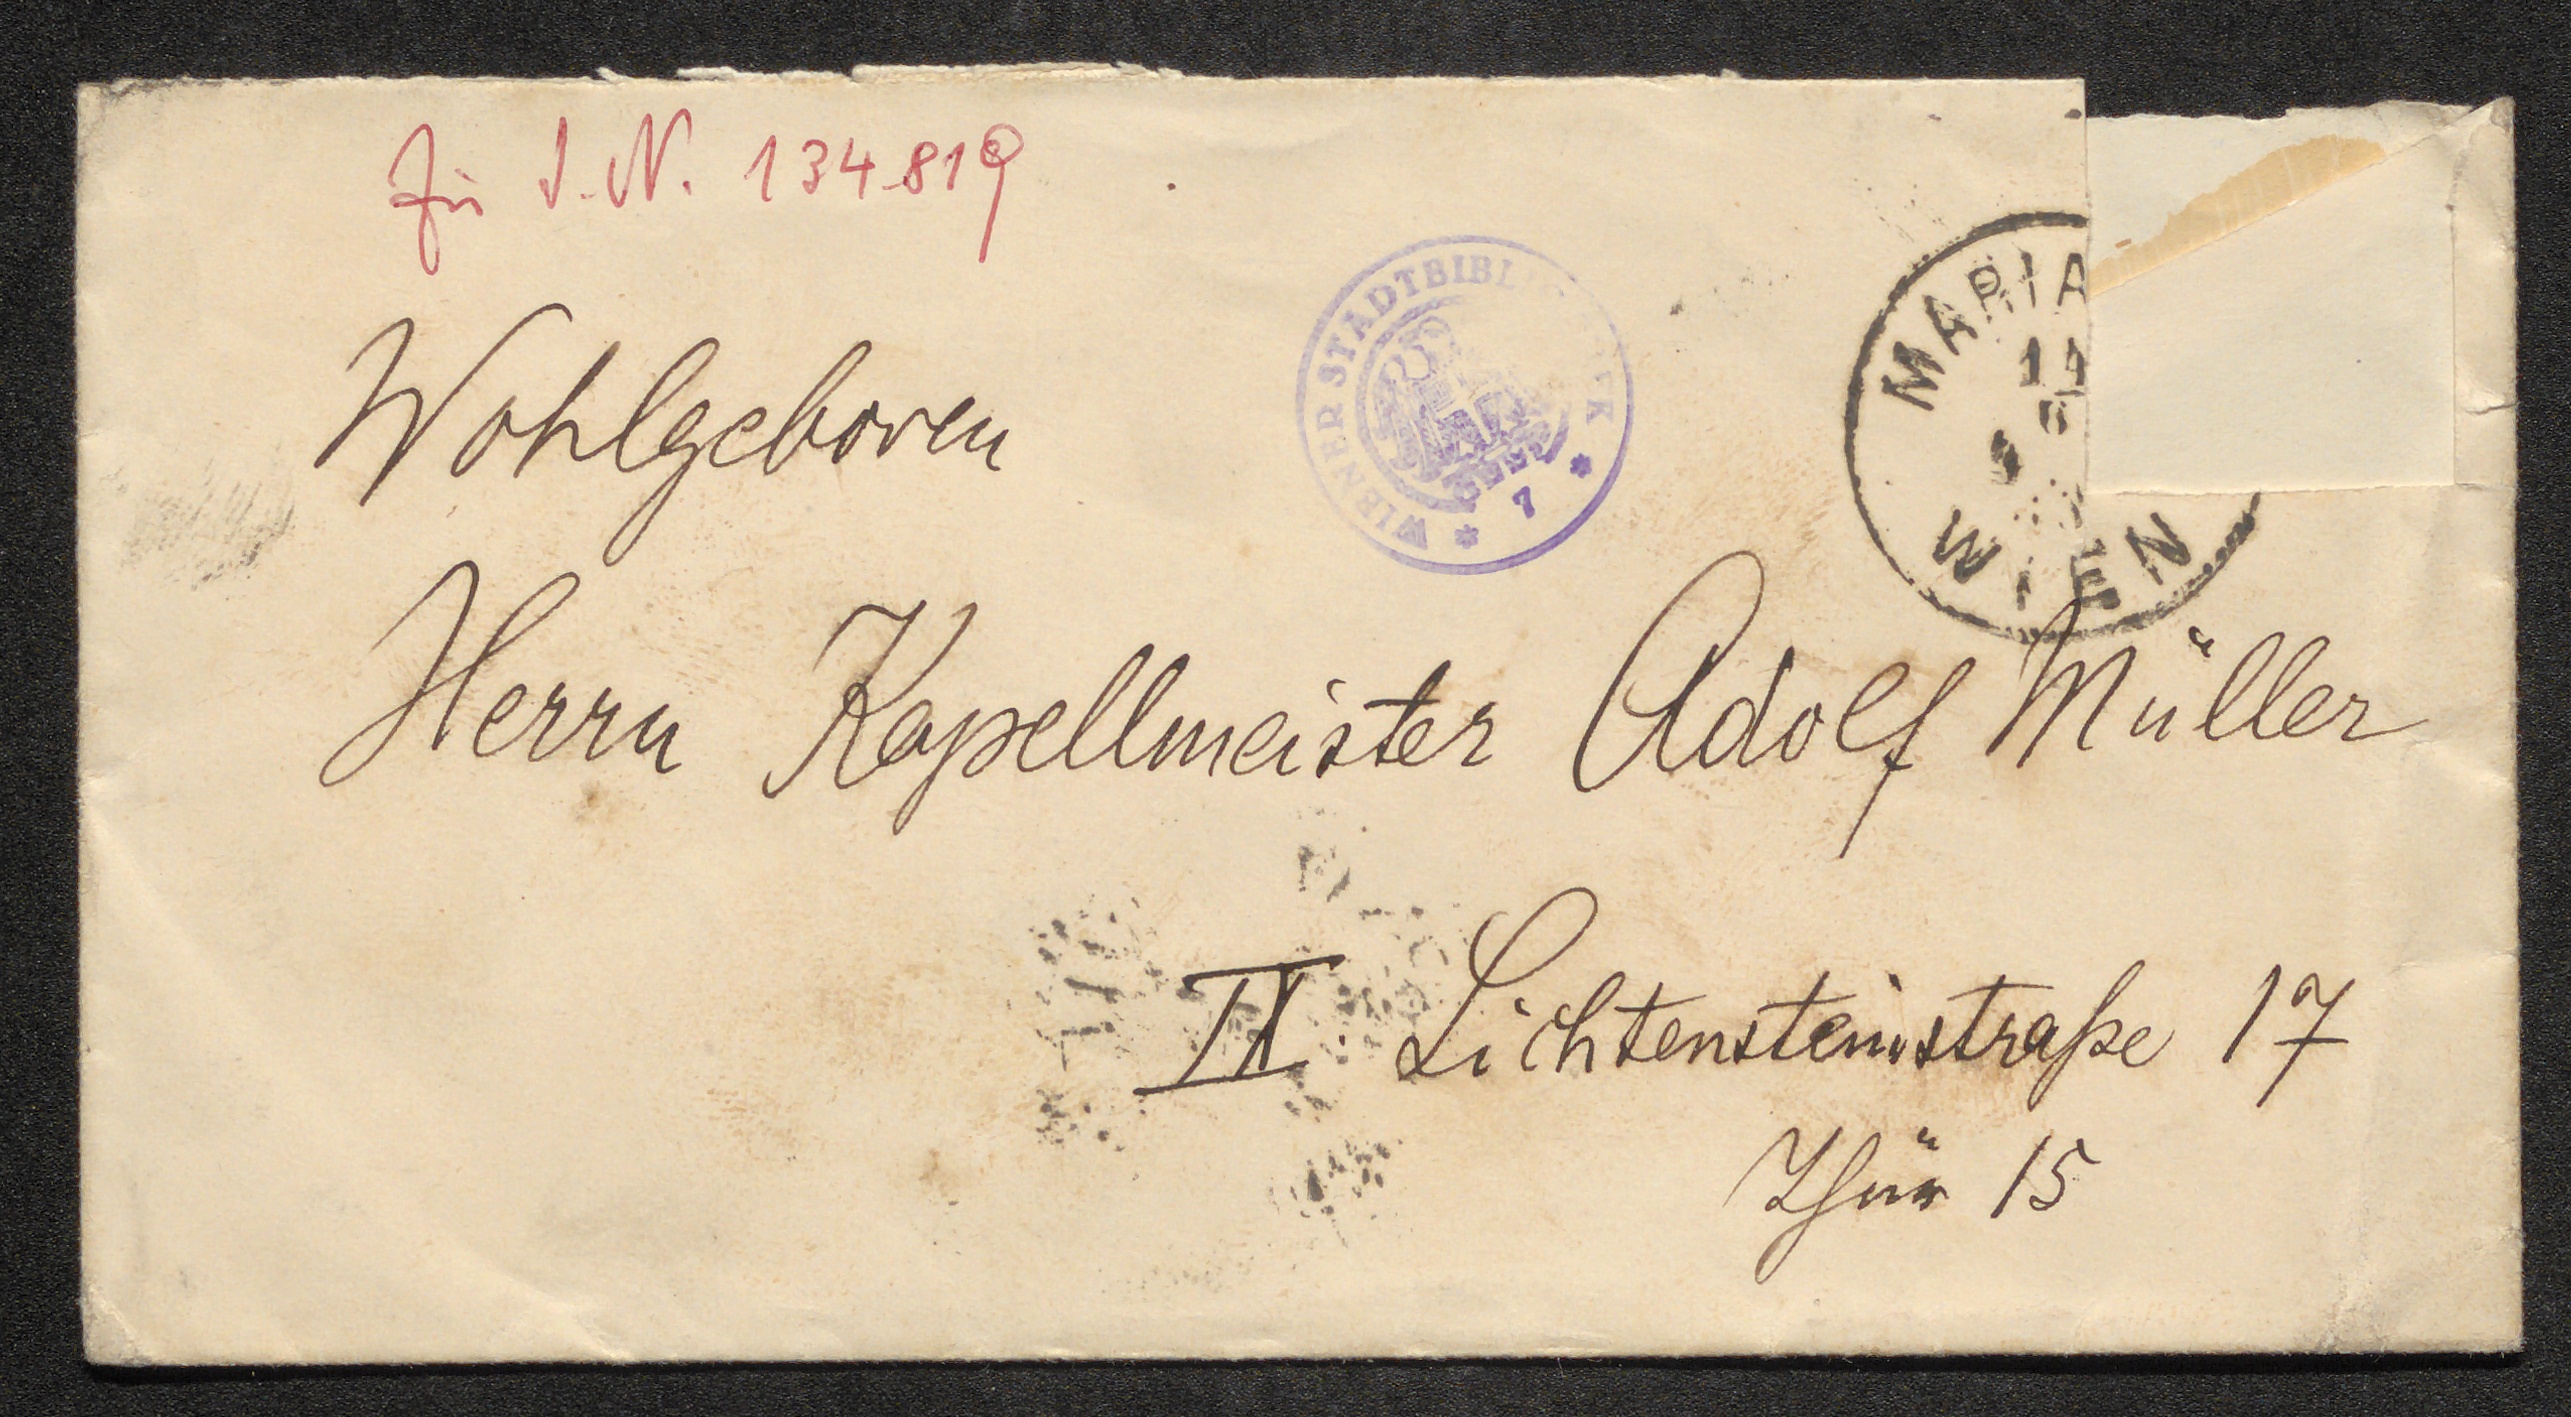 Zu I.N. 134.819
WIENER STADTBIBL
* 7 *
MARIA
WIEN
Wohlgeboren
Herrn Kapellmeister Adolf Müller
IX Lichtensteinstraße 17
Thür 15